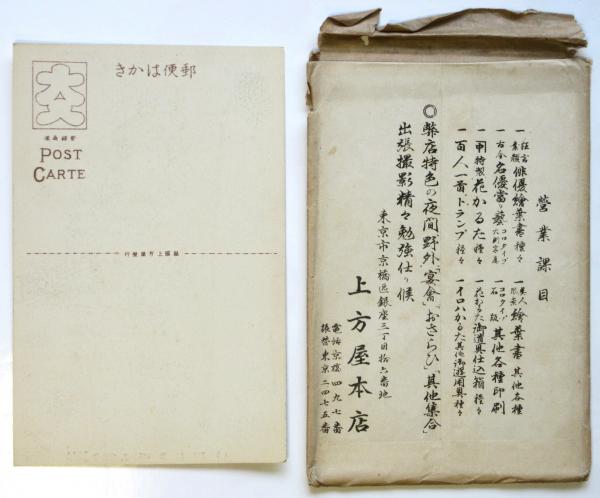 郵便はかき
POST
CARTE
銀座上方屋発行
營業課目
一 狂言素顔 俳優繪葉書 種々
一 美人風景 繪葉書 其他各種
一 古今名優當り藝 コロタイプ 大判写真
一 コロタイプ 石版 其他各種印刷
一 特製花かるた 種々
一 花かるた御道具仕込箱 種々
一 百人一首、トランプ 種々
一 イロハかるた其他御遊用具種々
◎弊店特色の夜間野外「宴會」「おさらひ」「其他集合」
出張撮影精々勉強仕り候
東京市京橋區銀座三丁目拾六番地
上方屋本店
電話京橋四九七番
振替東京二四七五番